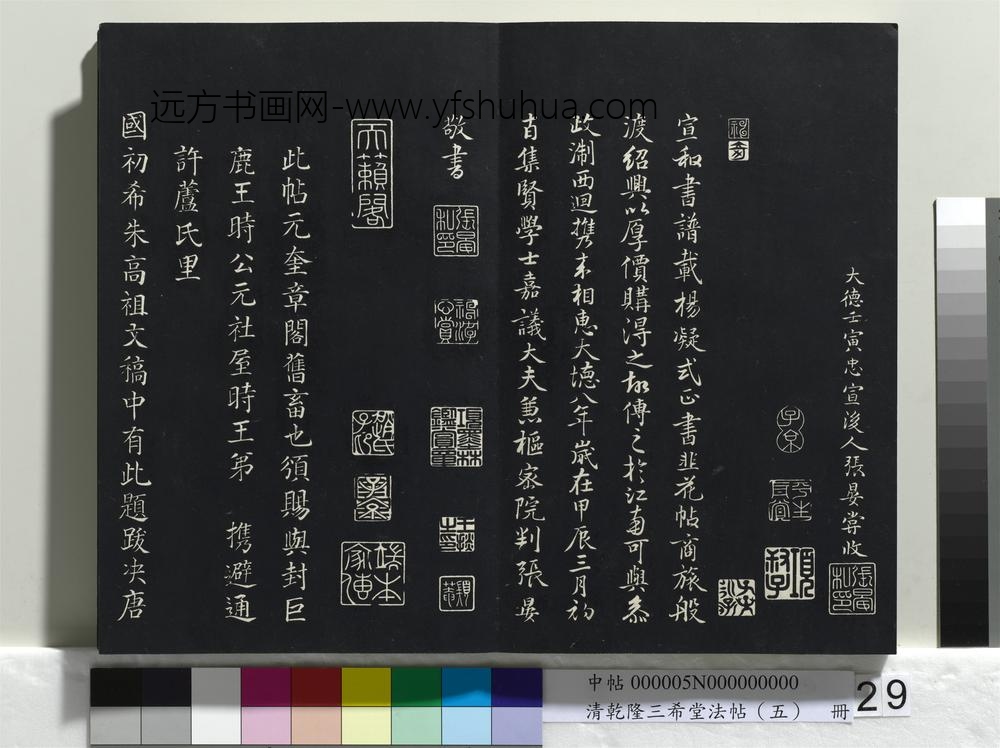 大德壬寅忠宣後人張晏嘗收
宣和書譜載楊凝式正書韭花帖商旅般
渡紹興以厚價購得之故傳之於江南可與恭
政淛西迴携來相惠大德八年歲在甲辰三月初
吉集賢學士嘉議大夫兼樞密院判張晏
敬書
天籟閣
此帖元奎章閣舊畜也頒賜與封巨
鹿王時公元社屋時王弟 携避通
許蘆氏里
國初希朱高祖文稿中有此題跋决唐
子京
張晏私印
平生真賞
項子京家珍藏
遠方书画网-www.yfshuhua.com
中帖 000005N000000000
清乾隆三希堂法帖（五） 冊
29